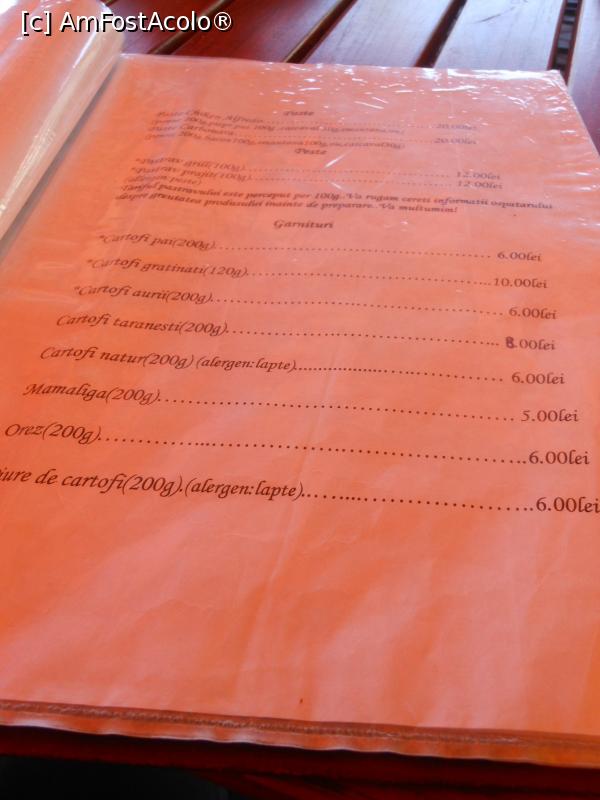 [c] AmFostAcolo®
Paste
Paste Chiken Alfredo 20.00lei
Paste Carbonara 20.00lei
Peste
*Pastrav gril(100g) 12.00lei
*Pastrav prajit(100g) 12.00lei
(alergen:peste)
Tariful pastravului este perceput per 100g..Va rugam cereti informatii ospatarului
despre greutatea produsului inainte de preparare..Va multumim!
Garnituri
*Cartofi pai(200g) 6.00lei
*Cartofi gratinati(120g) 10.00lei
*Cartofi aurii(200g) 6.00lei
Cartofi taranesti(200g) 8.00lei
Cartofi natur(200g) (alergen:lapte) 6.00lei
Mamaliga(200g) 5.00lei
Orez(200g) 6.00lei
iure de cartofi(200g).(alergen:lapte) 6.00lei